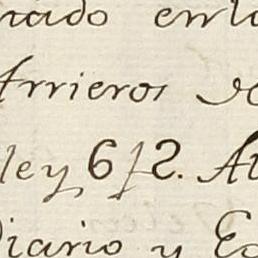 nado en lo
Arrieros de
ley 6 f 2. Al
Diario y Ec